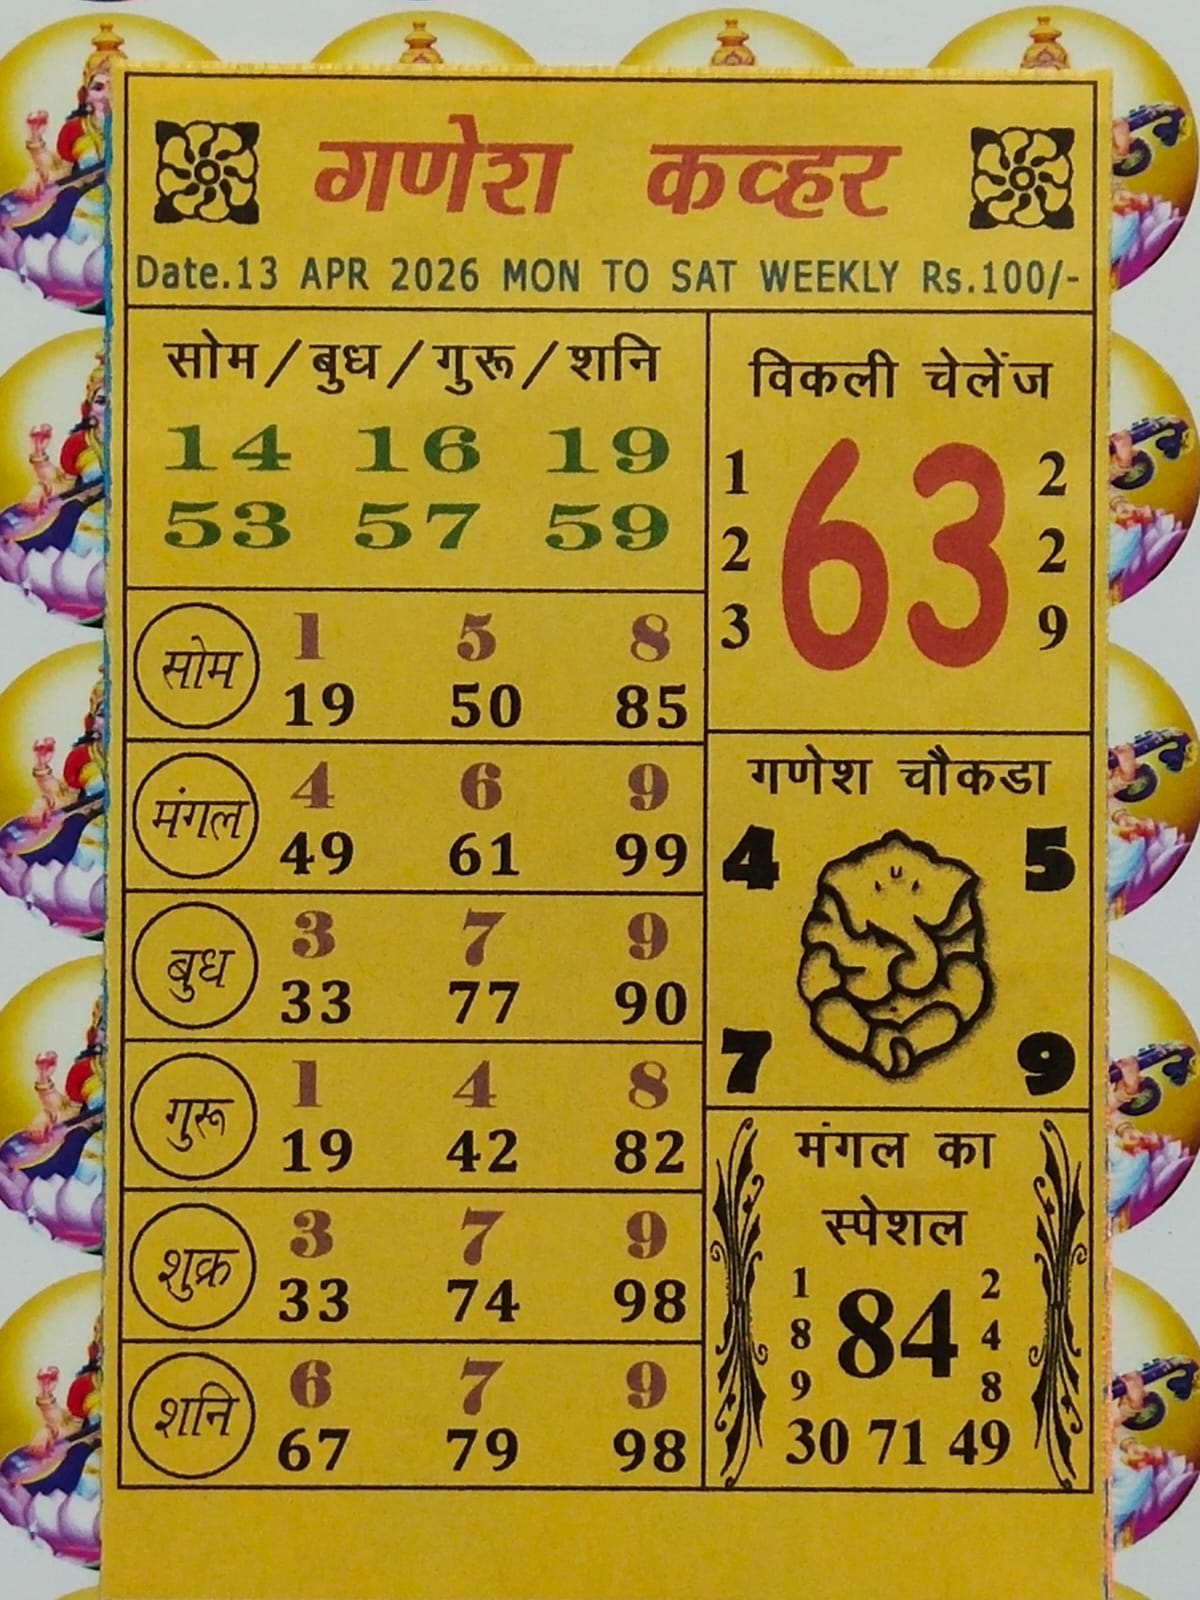 गणेश कव्हर
Date.13 APR 2026 MON TO SAT WEEKLY Rs.100/-
सोम / बुध / गुरू / शनि
14 16 19
53 57 59
सोम
1 5 8
19 50 85
मंगल
4 6 9
49 61 99
बुध
3 7 9
33 77 90
गुरू
1 4 8
19 42 82
शुक्र
3 7 9
33 74 98
शनि
6 7 9
67 79 98
विकली चेलेंज
1 2
2 63 2
3 9
गणेश चौकडा
4 5
7 9
मंगल का
स्पेशल
1 2
8 84 4
9 8
30 71 49